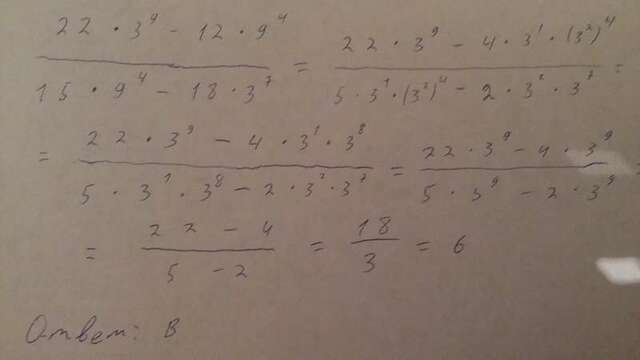 (22 · 3⁹ − 12 · 9⁴)/(15 · 9⁴ − 18 · 3⁷) = (22 · 3⁹ − 4 · 3¹ · (3²)⁴)/(5 · 3¹ · (3²)⁴ − 2 · 3² · 3⁷) =
= (22 · 3⁹ − 4 · 3¹ · 3⁸)/(5 · 3¹ · 3⁸ − 2 · 3² · 3⁷) = (22 · 3⁹ − 4 · 3⁹)/(5 · 3⁹ − 2 · 3⁹) =
= (22 − 4)/(5 − 2) = 18/3 = 6
Ответ: В